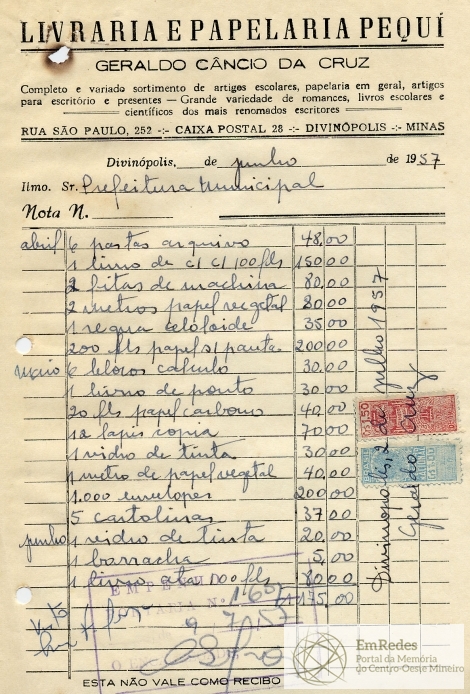 LIVRARIA E PAPELARIA PEQUÍ
GERALDO CÂNCIO DA CRUZ
Completo e variado sortimento de artiges escolares, papelaria em geral, artigos
para escritório e presentes — Grande variedade de romances, livros escolares e
científicos dos mais renomados escritores
RUA SÃO PAULO, 252 -:- CAIXA POSTAL 28 -:- DIVINÓPOLIS - MINAS
Divinópolis, de junho de 1957
Ilmo. Sr. Prefeitura Municipal
Nota N.
abril 6 pastas arquivo 48,00
1 livro de c/ c/ 100 fls 150,00
2 fitas de machina 80,00
2 metros papel vegetal 80,00
1 regua celoloide 35,00
200 fls papel s/ pauta 200,00
maio 6 blocos calculo 30,00
1 livro de ponto 30,00
20 fls papel carbono 40,00
12 lapis copia 70,00
1 vidro de tinta 30,00
1 metro de papel vegetal 40,00
1.000 envelopes 200,00
5 cartolinas 37,00
junho 1 vidro de tinta 20,00
1 borracha 5,00
1 livro ata 100 fls 80,00
175,00
EMPENHO
N.º 1657
9 7 57
Divinopolis, 2 de julho 1957
Geraldo Cruz
1,50
ESTA NÃO VALE COMO RECIBO
EmRedes
Portal da Memória
do Centro-Oeste Mineiro